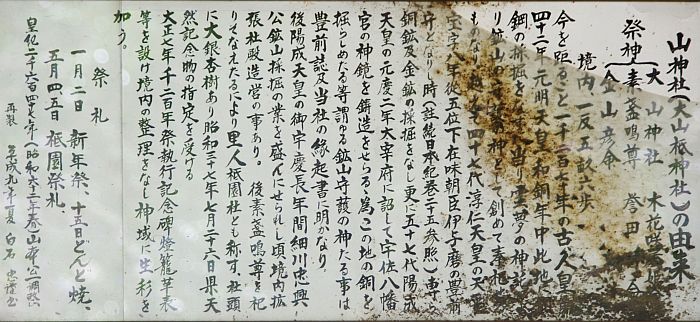 山神社(大山祇神社)の由来
祭神 大山神社 木花咲
素盞鳴尊 誉田 命
金山彦命
境内一反五畝六歩
今を距ること一千二百七年の古久皇
四十二年元明天皇の和銅年中此地
銅の採掘を 当り霊夢の神託
り鉱山の 神として創めて奉祀
ものなり 四十七代淳仁天皇の天平
宝字 年従五位下在味朝臣伊与磨の豊前
守となりし時(註続日本紀巻二十五参照)専ら
銅鉱及金鉱の採掘をなし更に五十七代陽成
天皇の元慶二年大宰府に詔して宇佐八幡
宮の神鏡を鋳造をせらる為この地の銅を
掘らしめたる等謂ゆる鉱山守護の神たる事は
豊前誌及当社の縁起書に明かなり。
後陽成天皇の御宇慶長年間細川忠興
公鉱山採掘の業を盛んにせられし頃境内拡
張社殿造営の事あり。後素盞鳴尊を祀
りそなえたるにより里人祇園社とも称す。社頭
に大銀杏樹あり昭和三十七年七月二十六日県天
然記念物の指定を受ける
大正七年千二百年祭執行記念碑燈籠華表
等を設け境内の整理をなし神域に生杉を
加う。
祭礼
一月二日 新年祭、十五日どんど焼、
五月四五日 祇園祭礼、
皇紀二千六百四十七年(昭和六十二年)春山本公嗣祭
再製 平成九年夏 白石